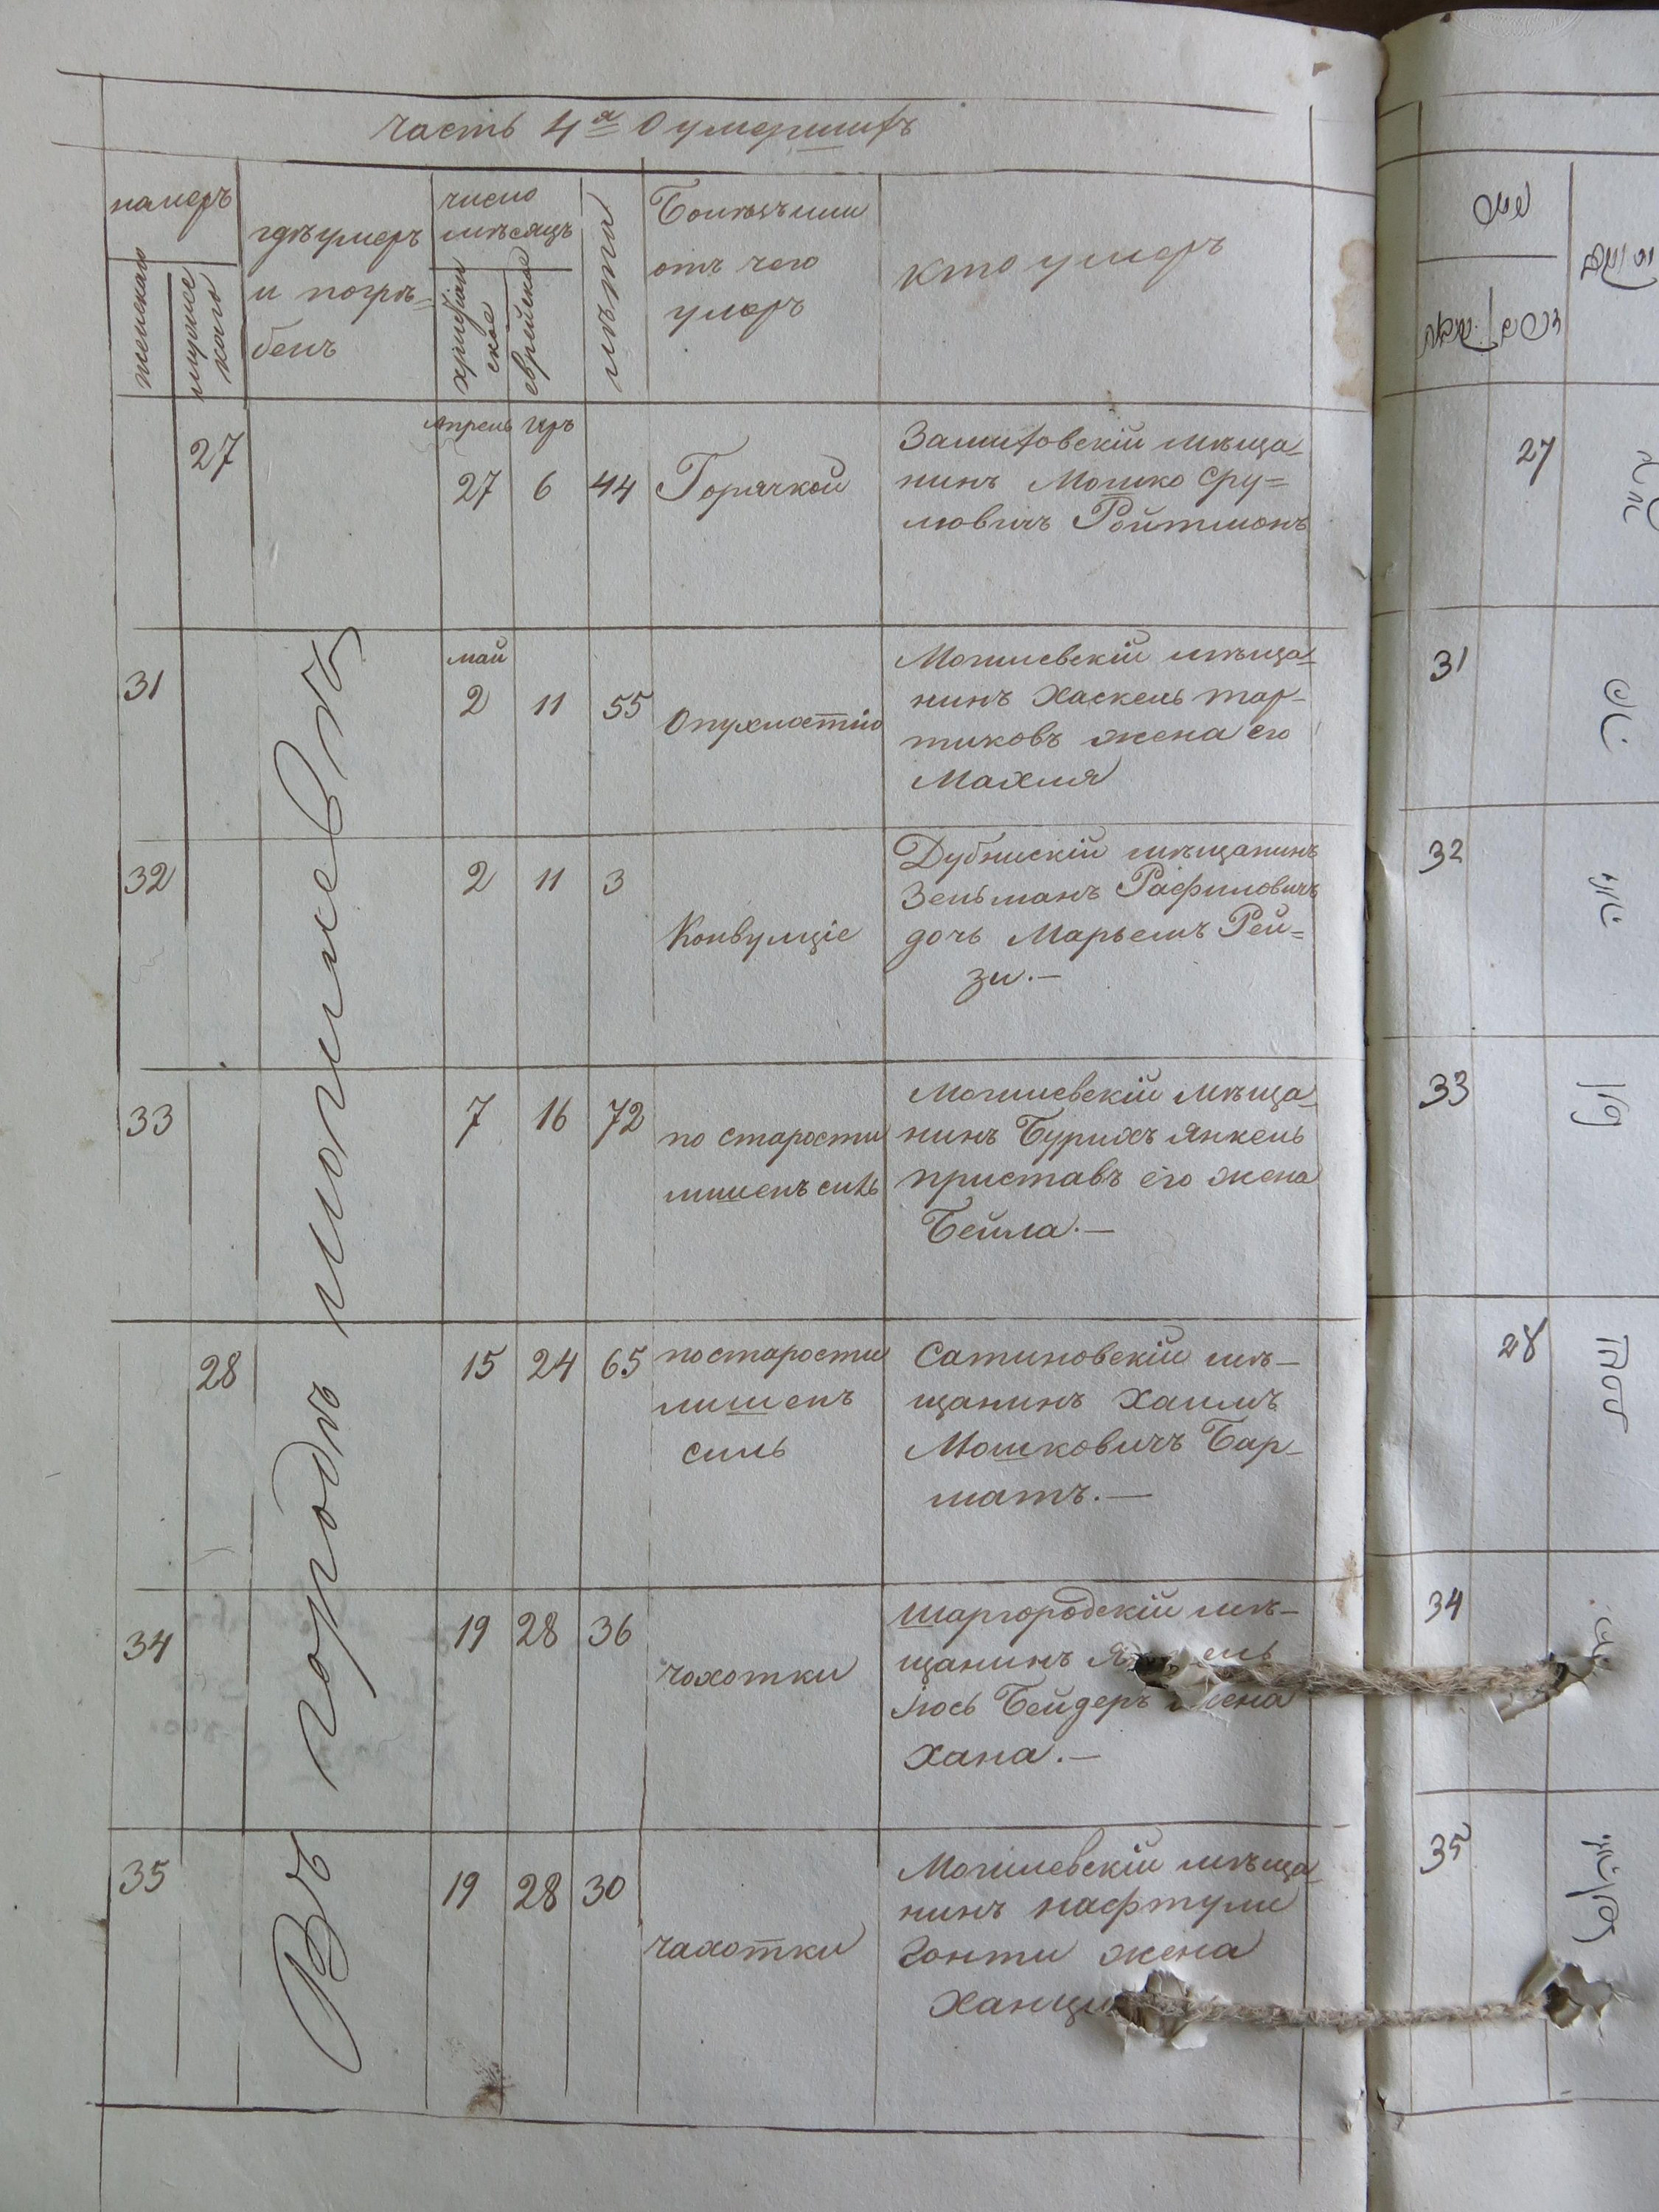 Часть 4я О умершихъ
намеръ
женскаго
мужескаго
гдѣ умеръ
и погрѣ=
бенъ
число
мѣсяцъ
христіанское
еврейское
лѣта
Болѣзъ или
отъ чего
умеръ
кто умеръ
27
апрель иръ
27 6 44
Горячкой
Залиховскій мѣща-
нинъ Мошко Сру=
левичъ Ройтманъ
Въ городѣ могилевѣ
31
май
2 11 55
опухлостію
Могилевскій мѣща-
нинъ Хаскель тар-
тиковъ жена его
Махля
32
2 11 3
Конвулціе
Дубнискій мѣщанинъ
Зельманъ Рафиловичъ
дочь Марьемъ Рей=
зи.—
33
7 16 72
по старости
лишенъ силь
Могилевскій Мѣща-
нинъ Бурихъ янкель
приставъ его жена
Бейла.—
28
15 24 65
по старости
лишенъ
силь
Сатановскій мѣ-
щанинъ Хаимъ
Мошковичъ Бар-
матъ.—
34
19 28 36
чохотки
Шаргородскій мѣ-
щанинъ
Іось Бейдеръ жена
Хана.—
35
19 28 30
чахотки
Могилевскій мѣща-
нинъ нафтули
Гонти жена
27
31
32
33
28
34
35